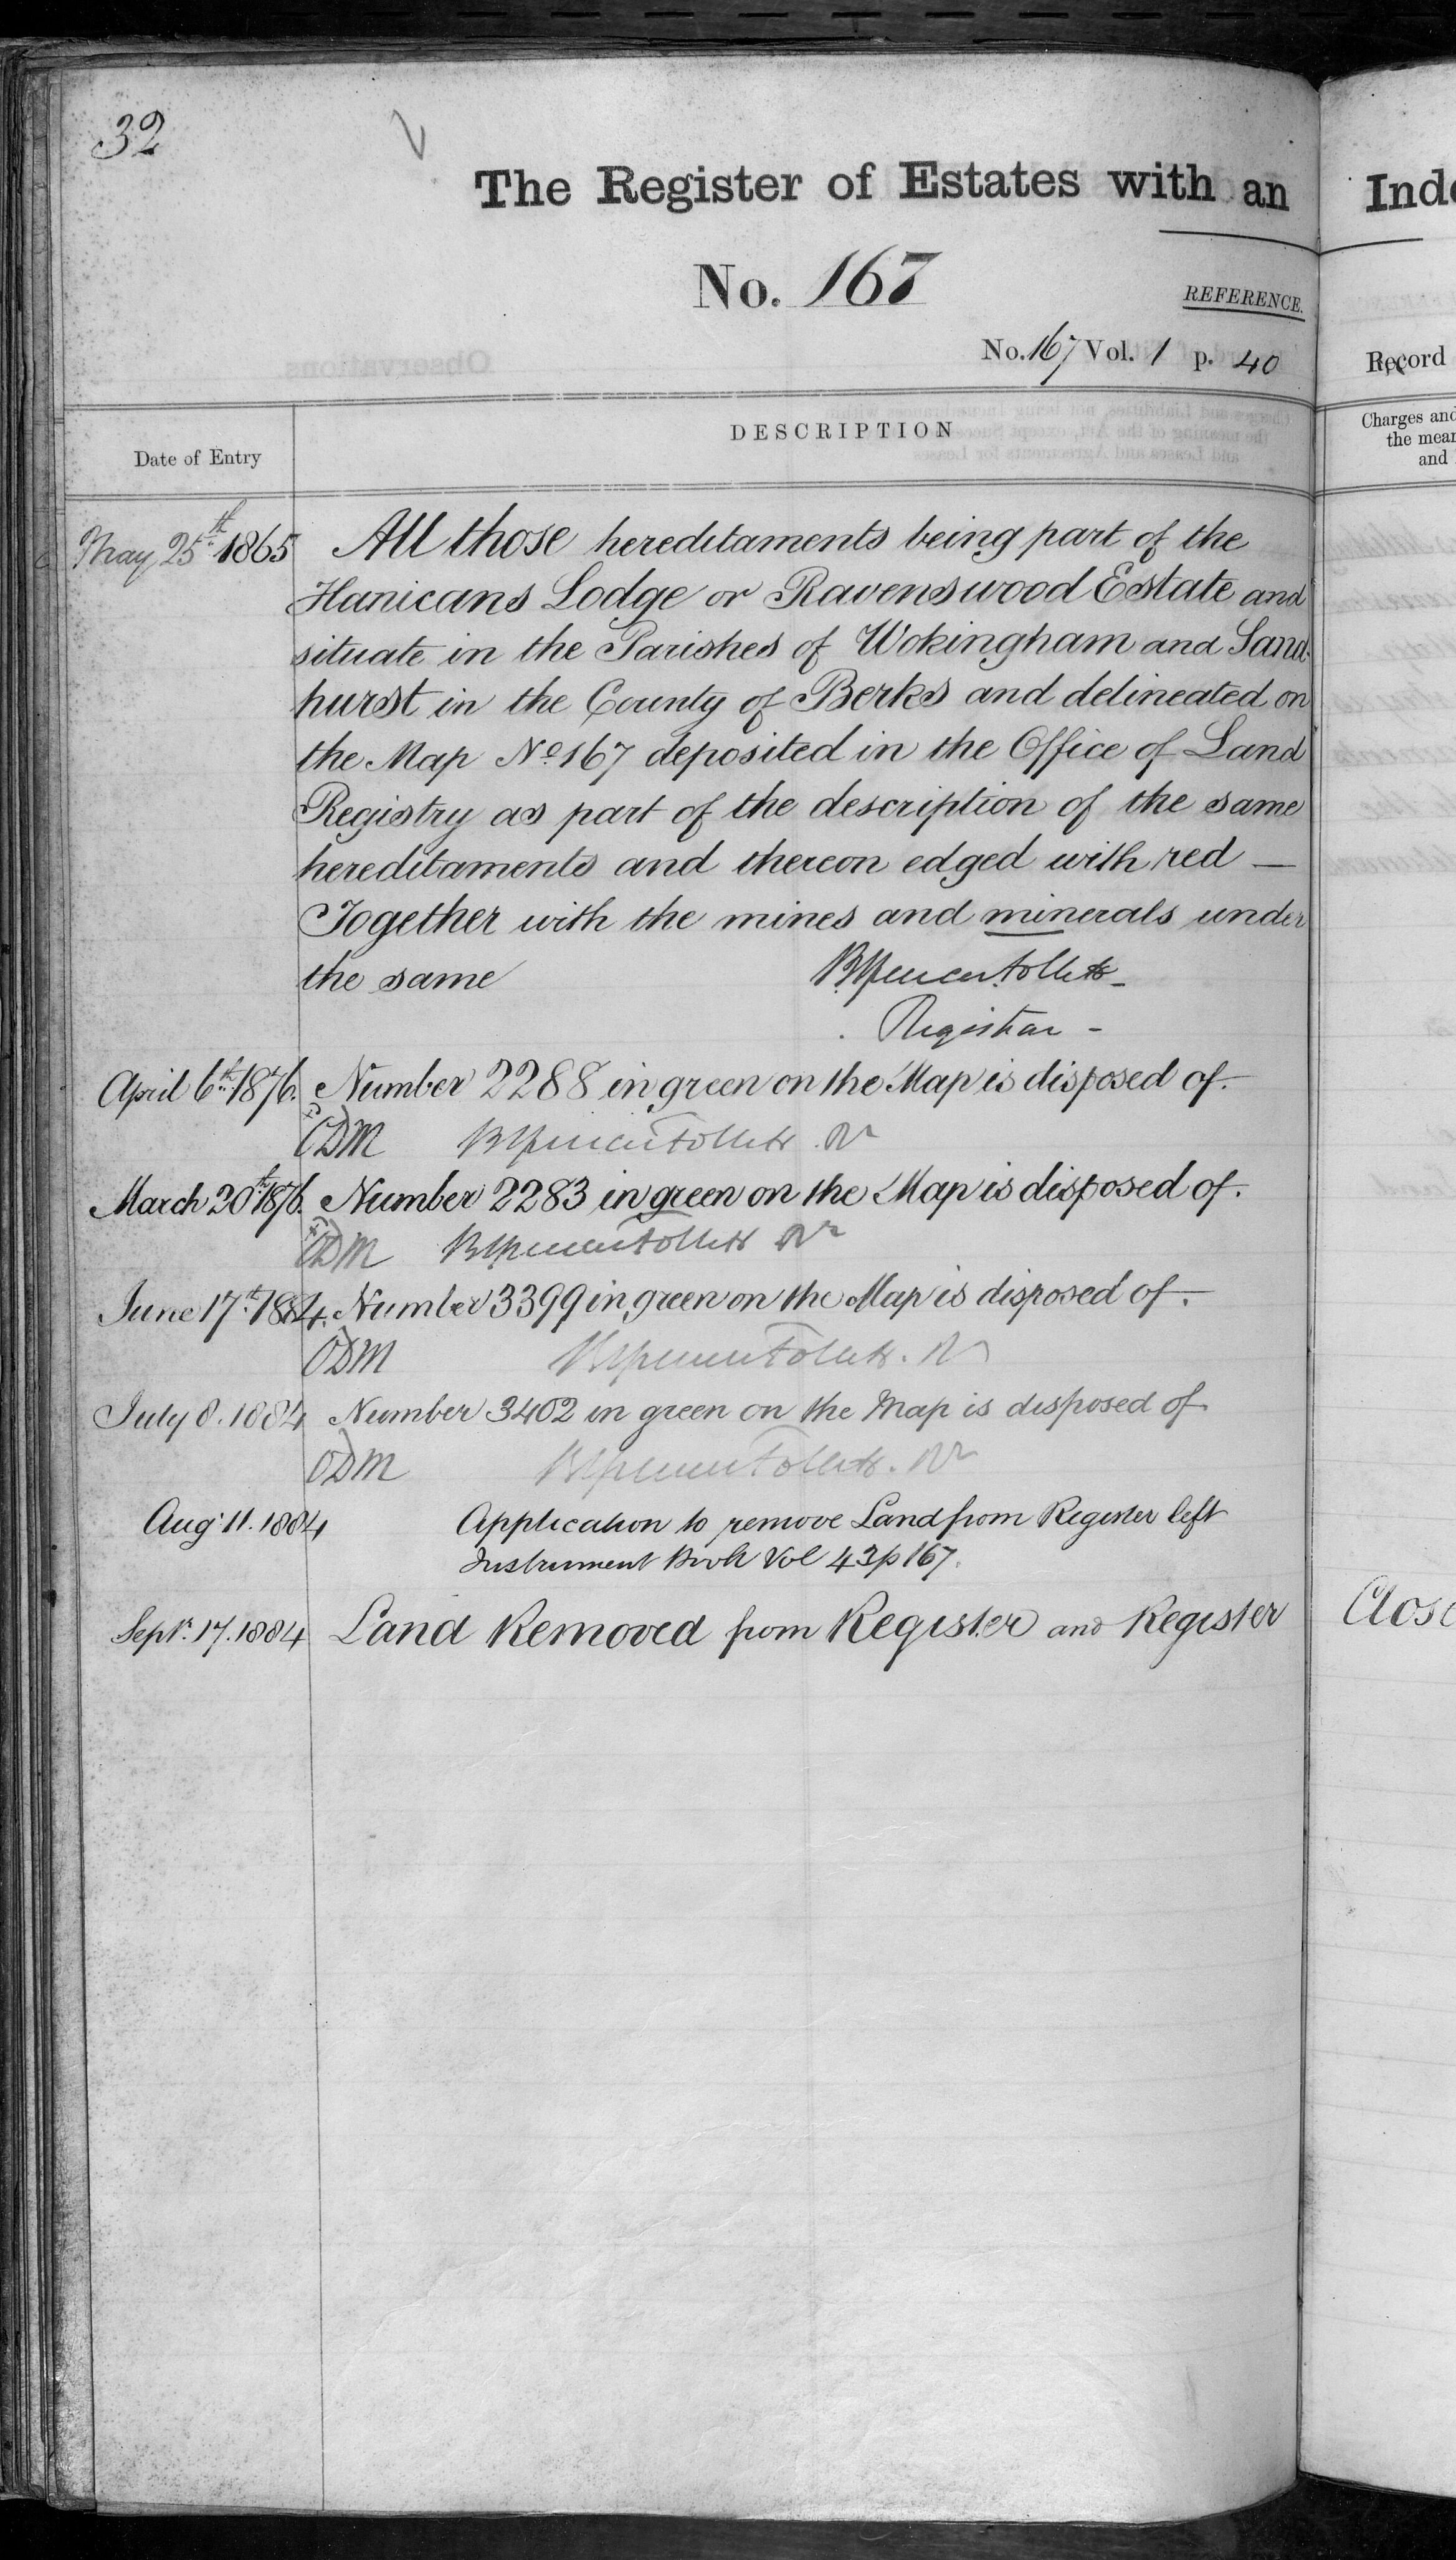 32
The Register of Estates with an
No. 167
REFERENCE.
No. 167 Vol. 1 p. 40
DESCRIPTION
Date of Entry
May 25th 1865 All those hereditaments being part of the
Hanicans Lodge or Ravenswood Estate and
situate in the Parishes of Wokingham and Sand-
hurst in the County of Berks and delineated on
the Map No 167 deposited in the Office of Land
Registry as part of the description of the same
hereditaments and thereon edged with red —
Together with the mines and minerals under
the same Follett
Registrar -
April 6th 1876. Number 2288 in green on the Map is disposed of.
ODM Follett Rr
March 20th 1876. Number 2283 in green on the Map is disposed of.
ODM Follett Rr
June 17th 1884. Number 3399 in green on the Map is disposed of.
ODM Follett. Rr
July 8. 1884 Number 3402 in green on the Map is disposed of
ODM Follett. Rr
Aug: 11. 1884 Application to remove Land from Register left
Instrument Book Vol 43 p 167.
Septr. 17. 1884 Land Removed from Register and Register
Inde
Record
Charges and
the mean
and
Close